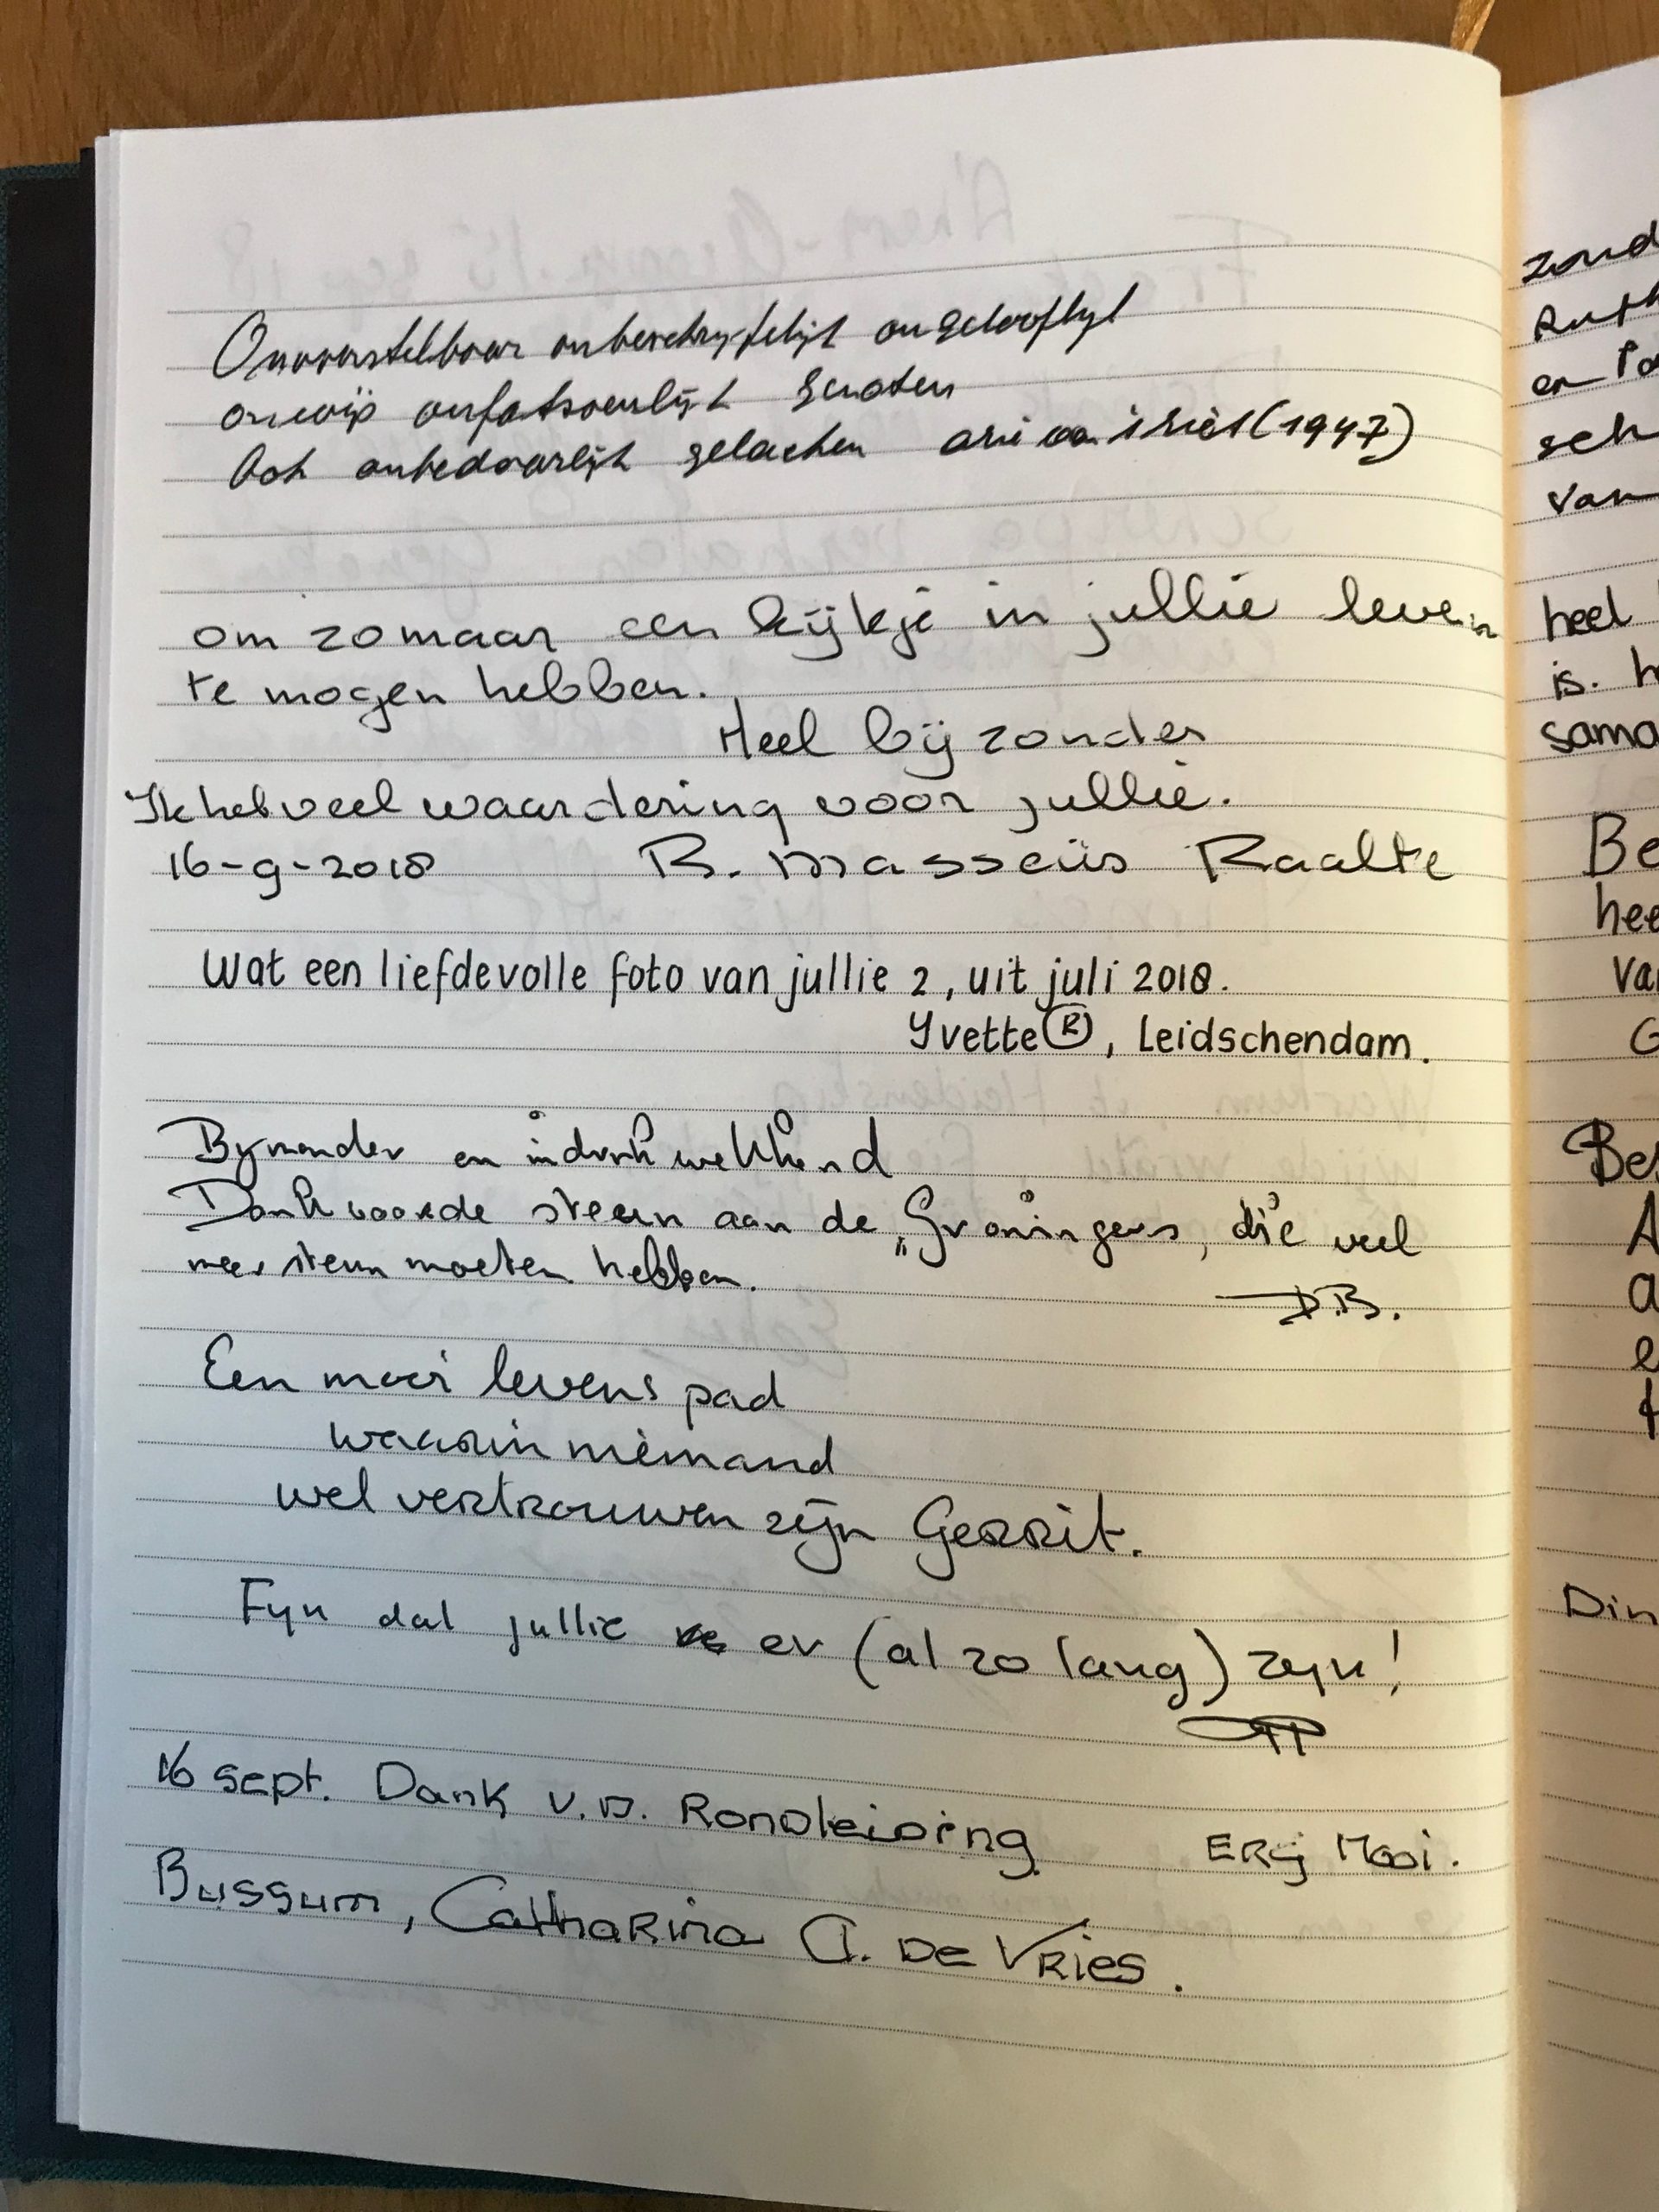 Onvoorstelbaar onbeschrijfelijk ongelooflijk
onwijs onfatsoenlijk genoten
Ook onbedaarlijk gelachen (1947)
om zomaar een kijkje in jullie leven
te mogen hebben.
Heel bijzonder
Ik heb veel waardering voor jullie.
16-9-2018 R. Masseüs Raalte
Wat een liefdevolle foto van jullie 2, uit juli 2018.
Yvette Ⓡ, Leidschendam.
Byzonder en indrukwekkend
Dank voor de steun aan de „Groningers, die veel
meer steun moeten hebben.
D.B.
Een mooi levens pad
waarin niemand
wel vertrouwen zijn Gerrit.
Fyn dat jullie er (al zo lang) zyn!
16 sept. Dank v.d. Rondleiding Erij Mooi.
Bussum, Catharina A. de Vries.
zond
Ruth
en
sch
van
heel
is. h
sama
Be
hee
Va
G
Bes
A
a
e
Din